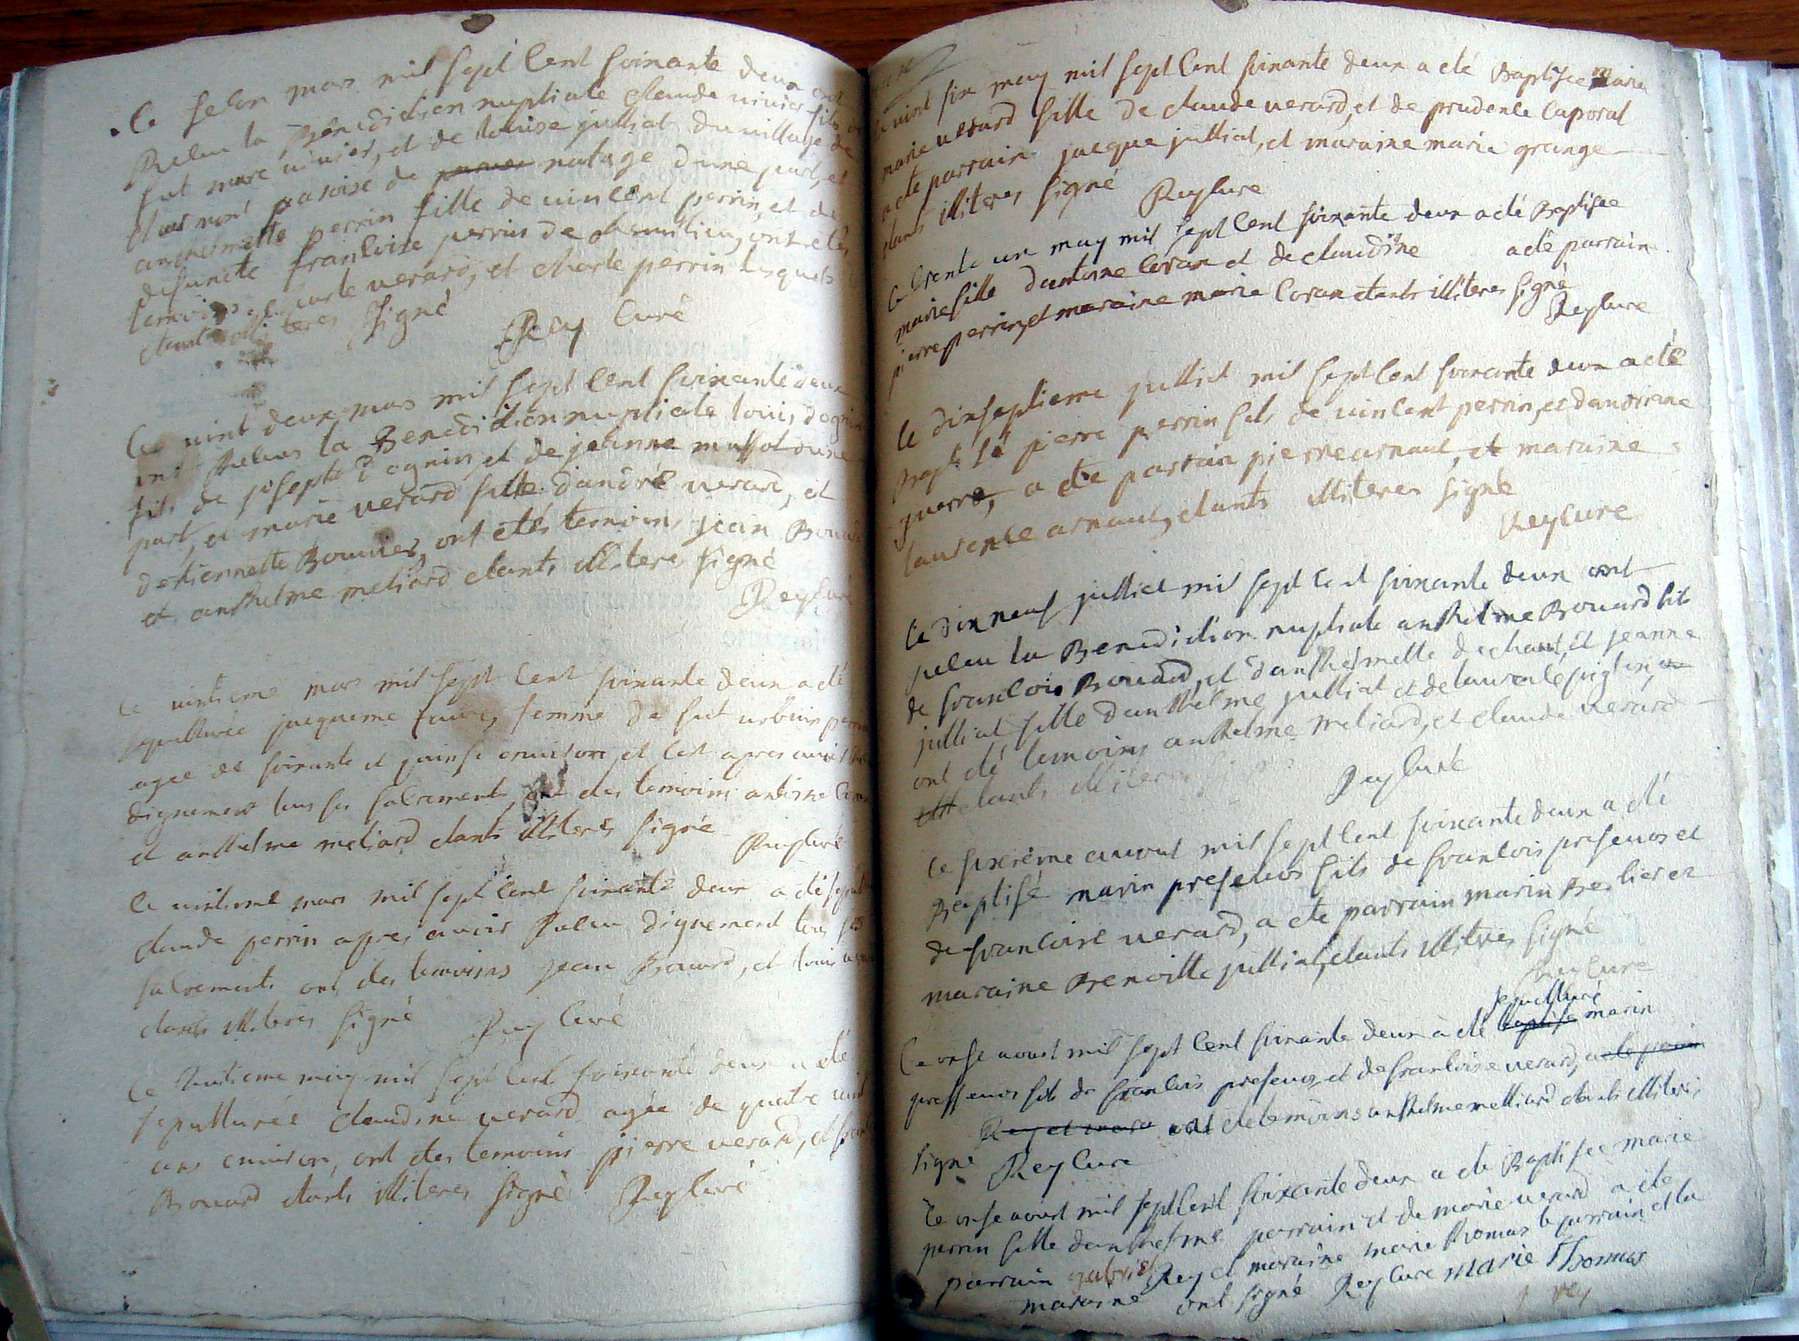 Le selon mars mil sept cent soixante deux ont
Recu la Benediction nuptiale claude vivier fils
fut marc vivier, et de louise julliat du village de
paroise de natage d'une part, et
anthelmette perrin fille de vincent perrin, et de
defuncte francoise perrin de chemilieu, ont etes
temoins verard, et charle perrin lesquels
etant illiteres signé
Rey Curé
Le vint deux mars mil sept cent soixante deux
ont Recus la Benediction nuptiale louis dognin
fils de joseph dognin, et de jeanne mussot d'une
part, et marie verard fille d'andré verard, et
d'etiennette Bouvier, ont etés temoins jean Bouard
et anthelme meliard etants illiteres signé
Rey Curé
Le vintieme mars mil sept cent soixante deux a eté
sepulturée jaqueme femme de fut urbain
agee de soixante et quinse environ et cest apres avoir
dignement tous ses sacrements ont etes temoins antoine
et anthelme meliard etants illiteres signé Rey Curé
Le vintieme mars mil sept cent soixante deux a eté
claude perrin apres avoir Recu dignement tous ses
sacrements ont etes temoins jean Bouard, et louis
etants illiteres signé Rey Curé
Le huitieme may mil sept cent soixante deux a eté
sepulturée claudine verard agée de quatre vint
ans environ, ont etes temoins pierre verard, et
Bouard etants illiteres signé Rey Curé
Le vint six may mil sept cent soixante deux a eté Baptisee marie
marie verard fille de claude verard, et de prudence caporal
a ete parrain jacque julliat, et maraine marie grange
etants illiteres signé Rey Cure
Le trente un may mil sept cent soixante deux a eté Baptisee
marie fille d'antoine coran et de claudine a eté parrain
pierre perrin, et maraine marie coran etants illiteres signé
Rey Cure
Le dixseptieme julliet mil sept cent soixante deux a eté
Baptisé pierre perrin fils de vincent perrin, et d'andrinne
guerre, a ete parrain pierre arnaud, et maraine
laurence arnaud, etants illiteres signé
Rey Cure
Le dix neuf julliet mil sept cent soixante deux ont
recu la Benediction nuptiale anthelme Bouard fils
de francois Bouard, et d'anthelmette dechant, et jeanne
julliat fille d'anthelme julliat et de laurence
ont eté temoins anthelme meliard, et claude verard
etants illiteres signé Rey Curé
Le sixieme aoust mil sept cent soixante deux a eté
Baptisé marin presevos fils de francois presevos et
de francoise verard, a ete parrain marin Berlier et
maraine Benoitte julliat, etants illiteres signé
Rey Cure
sepulturé
Le onse aoust mil sept cent soixante deux a eté baptisé marin
pressevos fils de francois presevos, et de francoise verard, a ete parrain
Rey et mara ont ete temoins anthelme melliard etants illiteres
signé Rey Cure
Le onse aoust mil sept cent soixante deux a ete Baptisee marie
perrin fille d'anthelme perrain et de marie verard a ete
parrain gabriel Rey et maraine marie thomas le parrain et la
maraine ont signé Rey Cure marie Thomas
rey